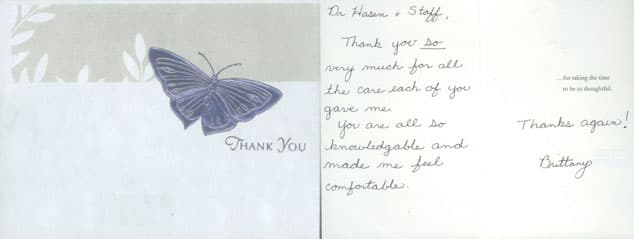 THANK YOU
Dr. Hasen + Staff,
Thank you so
very much for all
the care each of you
gave me.
You are all so
knowledgable and
made me feel
comfortable.
...for taking the time
to be so thoughtful.
Thanks again!
Brittany